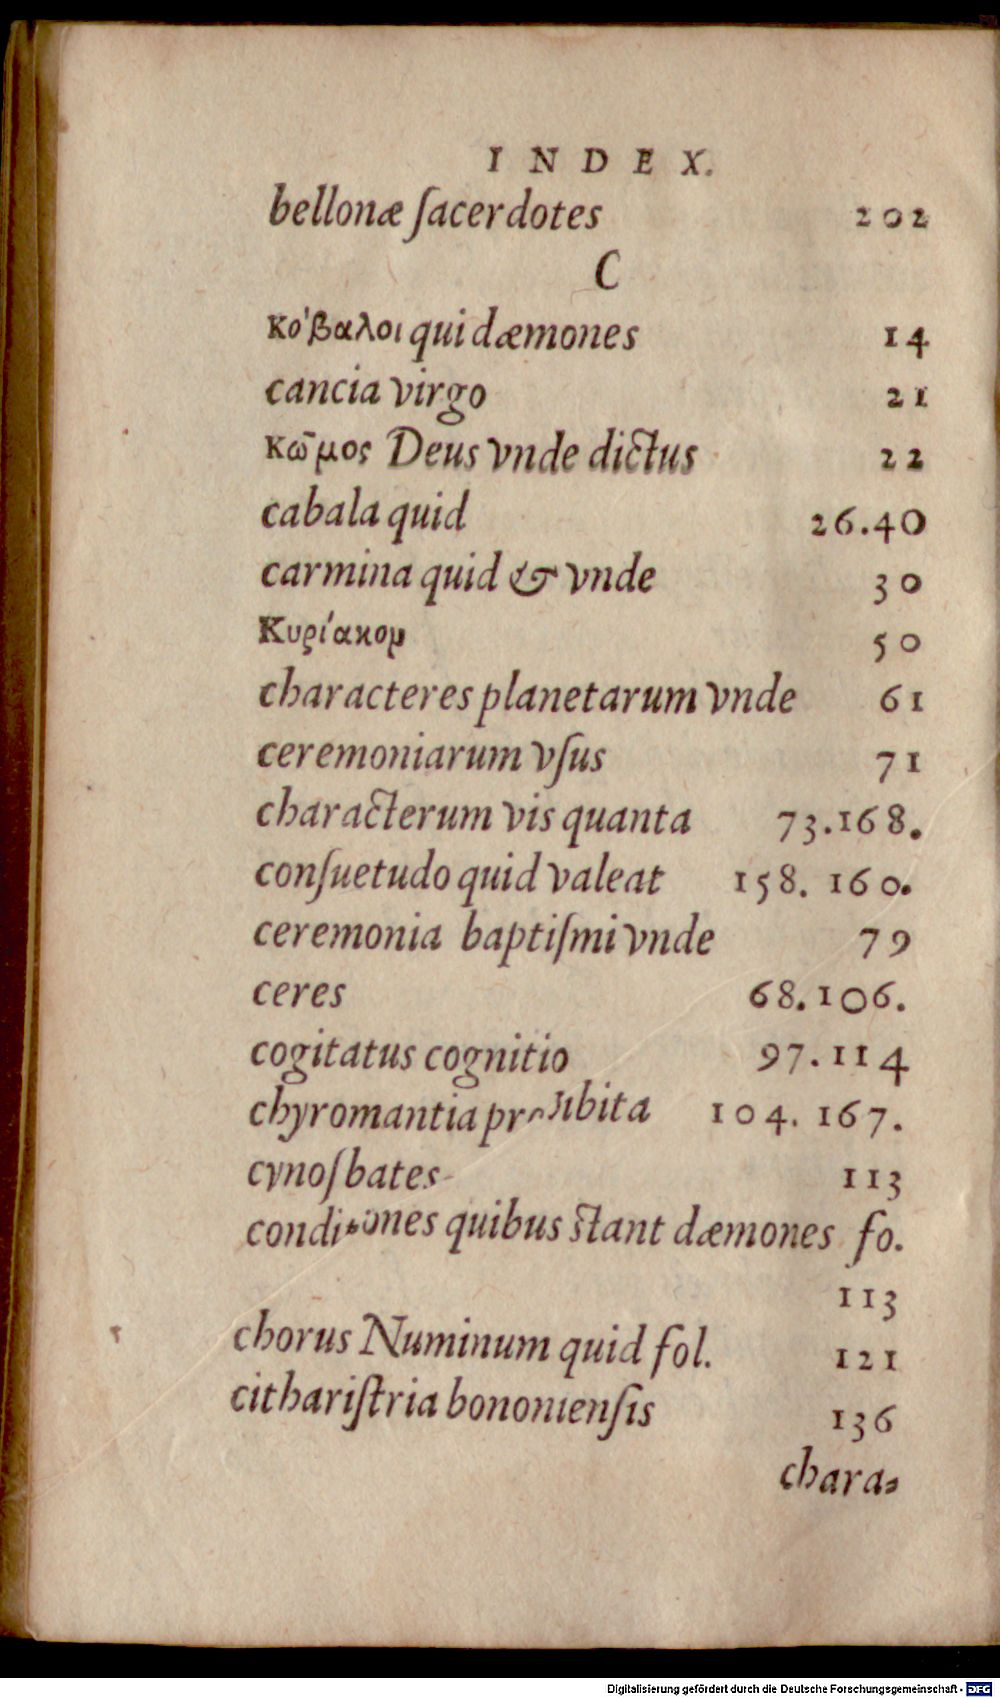 INDEX.
bellonæ ſacerdotes 202
C
κόβαλοι qui dæmones 14
cancia virgo 21
κῶμος Deus vnde dictus 22
cabala quid 26.40
carmina quid & vnde 30
Κυρίακομ 50
characteres planetarum vnde 61
ceremoniarum vſus 71
characterum vis quanta 73.168.
conſuetudo quid valeat 158. 160.
ceremonia baptiſmi vnde 79
ceres 68.106.
cogitatus cognitio 97.114
chyromantia prohibita 104. 167.
cynoſbates 113
conditiones quibus ſtant dæmones fo.
113
chorus Numinum quid fol. 121
cithariſtria bononienſis 136
chara⸗
Digitalisierung gefördert durch die Deutsche Forschungsgemeinschaft - DFG